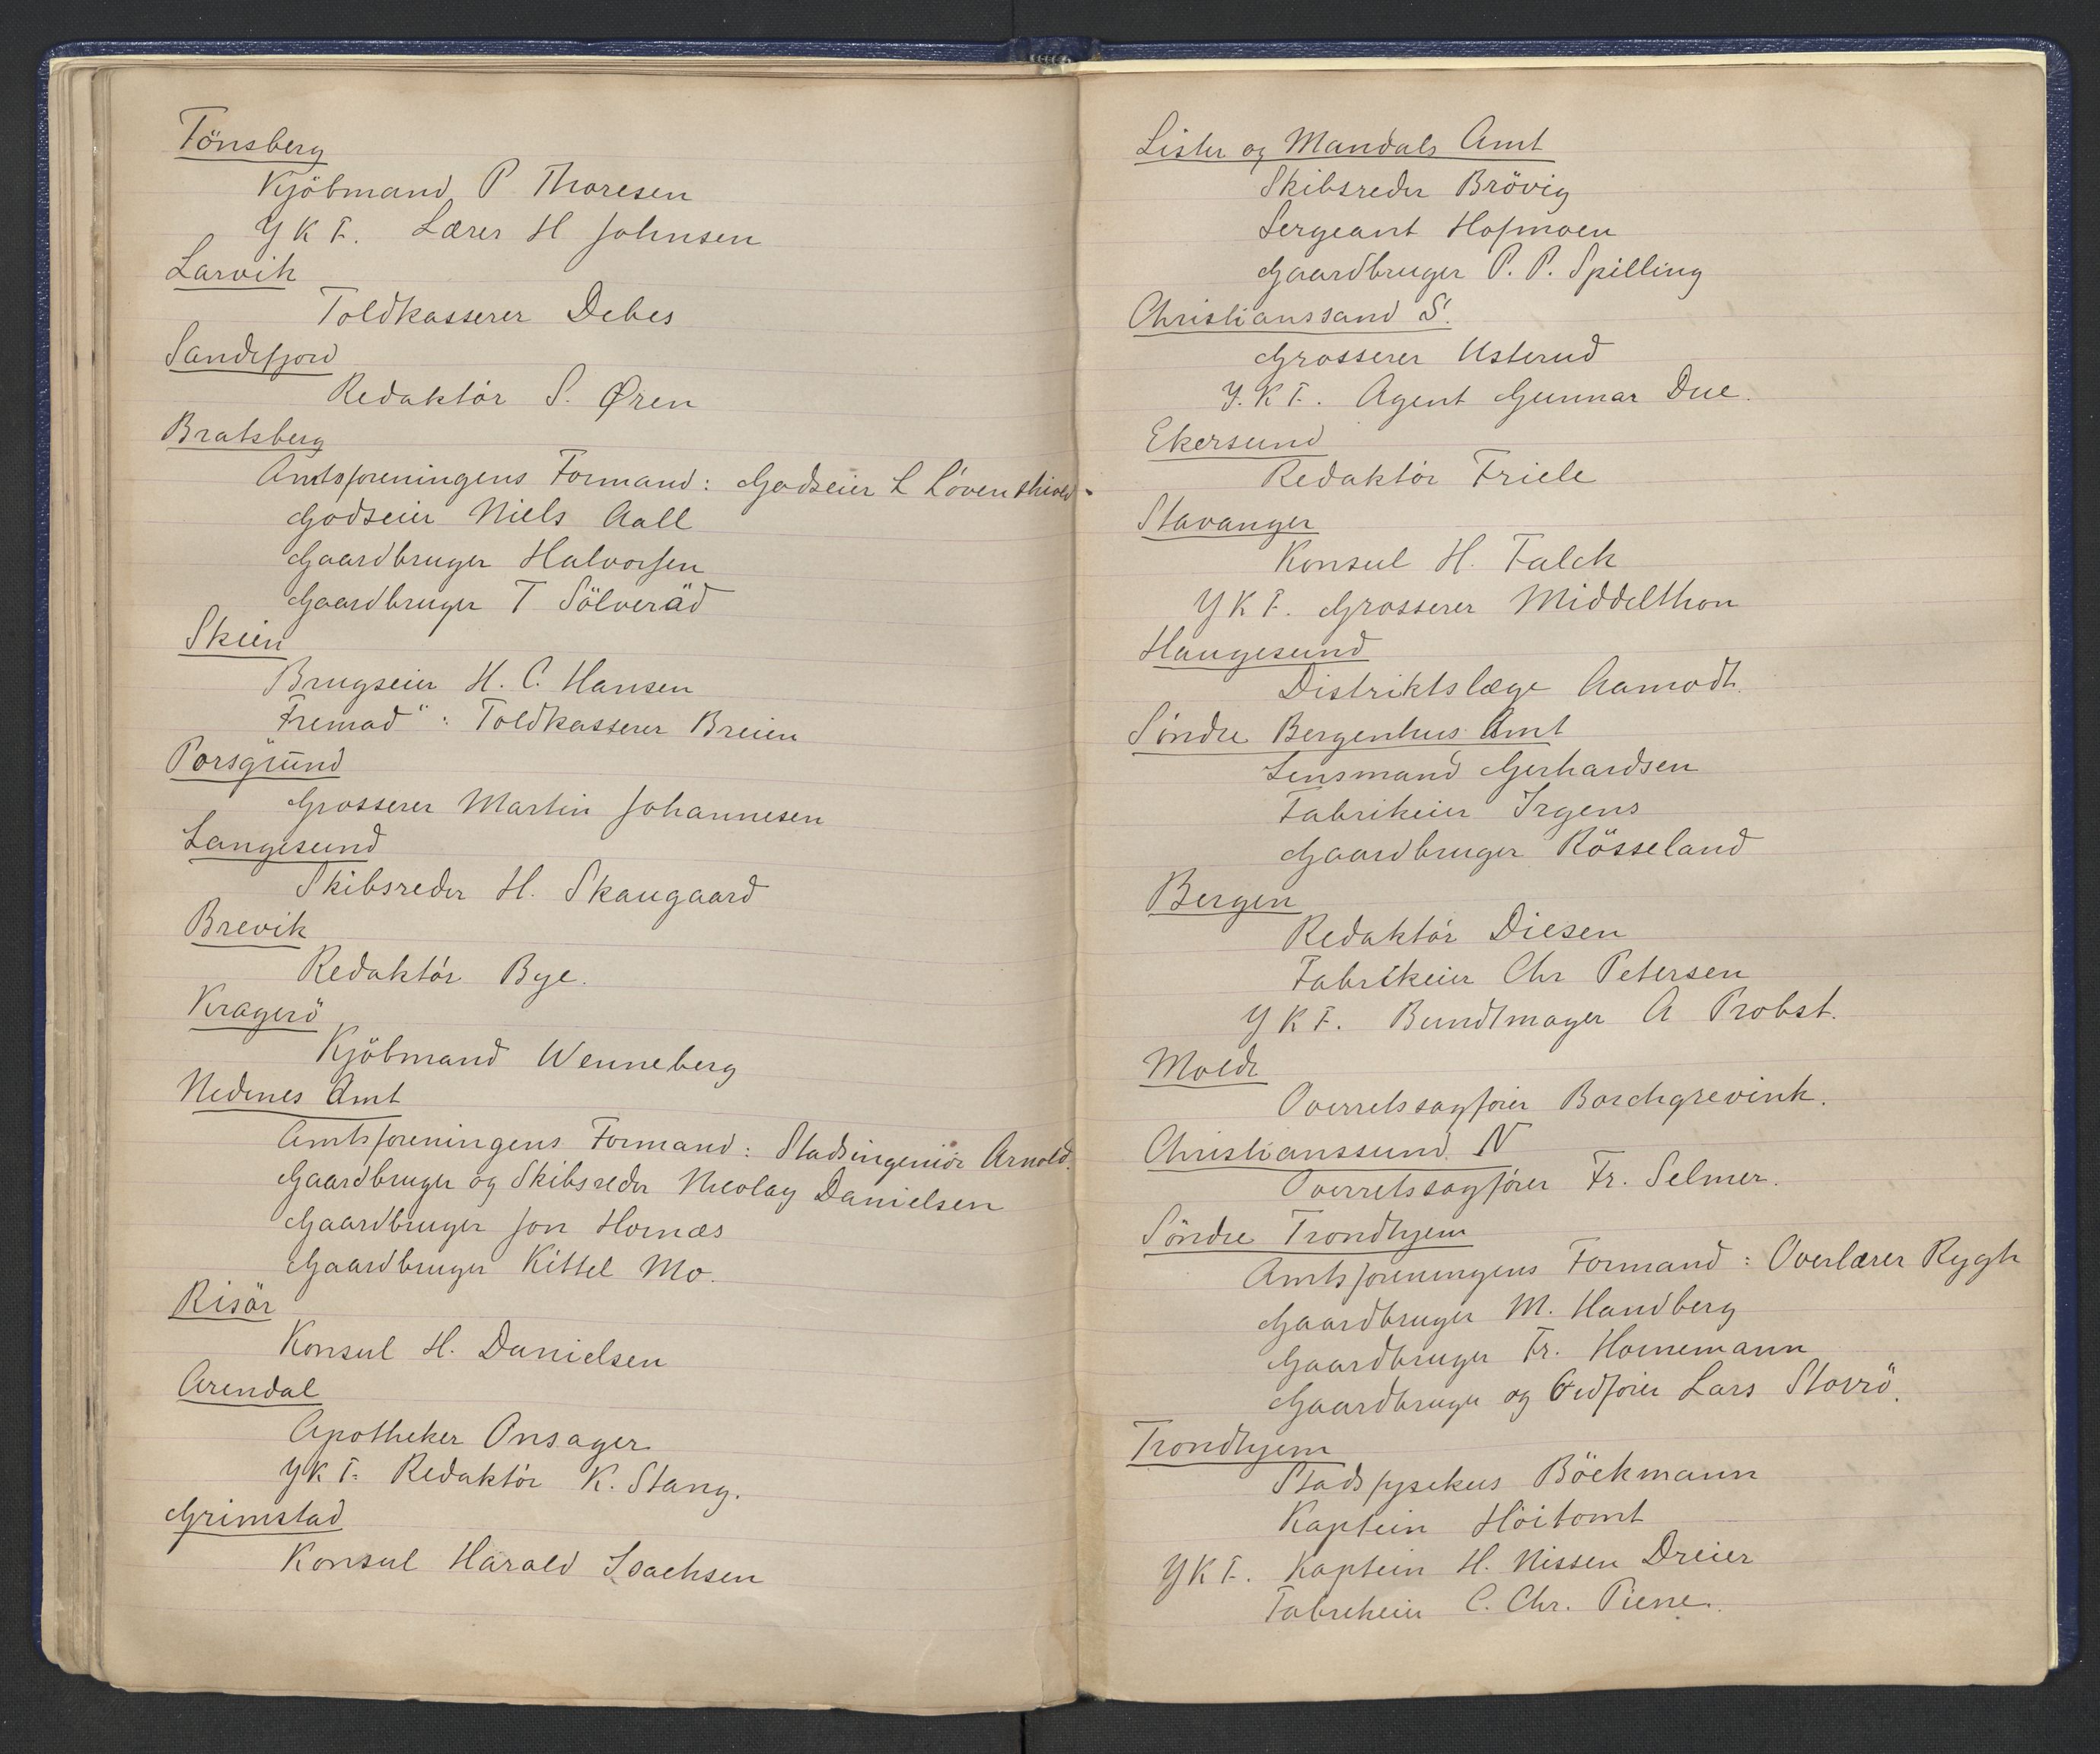 Tönsberg
Kjöbmand P Thoresen
Y K F. Lærer H Johnsen
Larvik
Toldkasserer Debes
Sandefjord
Redaktör S. Øren
Bratsberg
Amtsforeningens Formand: Godseier L Lövenskiold
Godseier Niels Aall
Gaardbruger Halvorsen
Gaardbruger T Sölveråd
Skien
Brugseier H. C. Hansen
Fremad": Toldkasserer Breien
Porsgrund
Grosserer Martin Johannesen
Langesund
Skibsreder H. Skaugaard
Brevik
Redaktör Bye.
Kragerö
Kjöbmand Wenneberg
Nedenes Amt
Amtsforeningens Formand: Stadsingeniör Arnold.
Gaardbruger og Skibsreder Nicolay Danielsen
Gaardbruger Jon Hornæs
Gaardbruger Kittel Mo.
Risör
Konsul H. Danielsen
Arendal
Apotheker Onsager
YKF. Redaktör K. Stang.
Grimstad
Konsul Harald Isachsen
Lister og Mandals Amt
Skibsreder Brövig
Sergeant Hofmoen
Gaardbruger P. P. Spilling
Christianssand S.
Grosserer Usterud
Y. K F. Agent Gunnar Due.
Ekersund
Redaktör Friele
Stavanger
Konsul H. Falck
Y K F. Grosserer Middelthon
Haugesund
Distriktslæge Aamodt.
Söndre Bergenhus Amt
Lensmand Gerhardsen
Fabrikeier Irgens
Gaardbruger Rösseland
Bergen
Redaktör Diesen
Fabrikeier Chr Petersen
Y K F. Bundtmager A Probst.
Molde
Overretssagförer Borchgrevink.
Christianssund N
Overretssagförer Fr. Selmer.
Söndre Trondhjem
Amtsforeningens Formand: Overlærer Rygh
Gaardbruger M. Handberg
Gaardbruger Fr. Hornemann
Gaardbruger og Ordförer Lars Stovrö.
Trondhjem
Stadsfysikus Böckmann
Kaptein Höitomt
Y K F. Kaptein H. Nissen Dreier
Fabrikeier C. Chr. Piene.